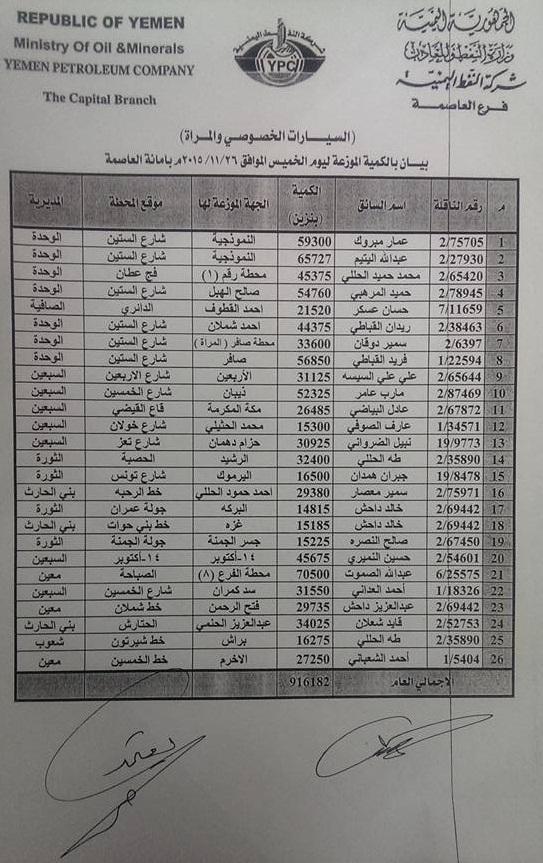 REPUBLIC OF YEMEN
Ministry Of Oil &Minerals
YEMEN PETROLEUM COMPANY
The Capital Branch
شركة النفط اليمنية
YPC
الجمهورية اليمنية
وزارة النفط والمعادن
شركة النفط اليمنية
فرع العاصمة
(السيارات الخصوصي والمراة)
بيان بالكمية الموزعة ليوم الخميس الموافق ٢٠١٥/١١/٢٦م بامانة العاصمة
م رقم الناقلة اسم السائق الكمية (بنزين) الجهة الموزعة لها موقع المحطة المديرية
1 2/75705 عمار مبروك 59300 النموذجية شارع الستين الوحدة
2 2/27930 عبدالله اليتيم 65727 النموذجية شارع الستين الوحدة
3 2/65420 محمد حميد الحللي 45375 محطة رقم (١) فج عطان الوحدة
4 2/78945 حميد المرهبي 54760 صالح الهبل شارع الستين الوحدة
5 7/11659 حسان عسكر 21520 احمد القطوف الدائري الصافية
6 2/38463 ريدان القباطي 44375 احمد شملان شارع الستين الوحدة
7 2/6397 سمير دوقان 33600 محطة صافر (المراة) شارع الستين الوحدة
8 1/22594 فريد القباطي 56850 صافر شارع الستين الوحدة
9 2/65644 علي علي السيسه 31125 الأربعين شارع الاربعين السبعين
10 2/87469 مارب عامر 52325 ذيبان شارع الخمسين السبعين
11 2/67872 عادل البياضي 26485 مكة المكرمة قاع القيضي السبعين
12 1/34571 عارف الصوفي 15300 محمد الحثيلي شارع خولان السبعين
13 19/9773 نبيل الضرواني 30925 حزام دهمان شارع تعز السبعين
14 2/35890 طه الحللي 32400 الرشيد الحصبة الثورة
15 19/8478 جبران همدان 16500 اليرموك شارع تونس الثورة
16 2/75971 سمير معصار 29380 احمد حمود الحللي خط الرحبه بني الحارث
17 2/69442 خالد داحش 14815 البركه جولة عمران الثورة
18 2/69442 خالد داحش 15185 غزه خط بني حوات بني الحارث
19 2/67450 صالح النصره 15225 جسر الجمنة جولة الجمنة الثورة
20 2/54601 حسين النميري 45675 ١٤-أكتوبر ١٤-أكتوبر السبعين
21 6/25575 عبدالله الصموت 70500 محطة الفرع (٨) الصباحة معين
22 1/18326 أحمد العداني 31550 سد كمران شارع الخمسين السبعين
23 2/69442 عبدالعزيز داحش 29735 فتح الرحمن خط شملان معين
24 2/52753 قايد شعلان 34025 عبدالعزيز الحنمي الحتارش بني الحارث
25 2/35890 طه الحللي 16275 براش خط شيرتون شعوب
26 1/5404 أحمد الشعباني 27250 الاخرم خط الخمسين معين
الاجمالي العام 916182
يعتمد